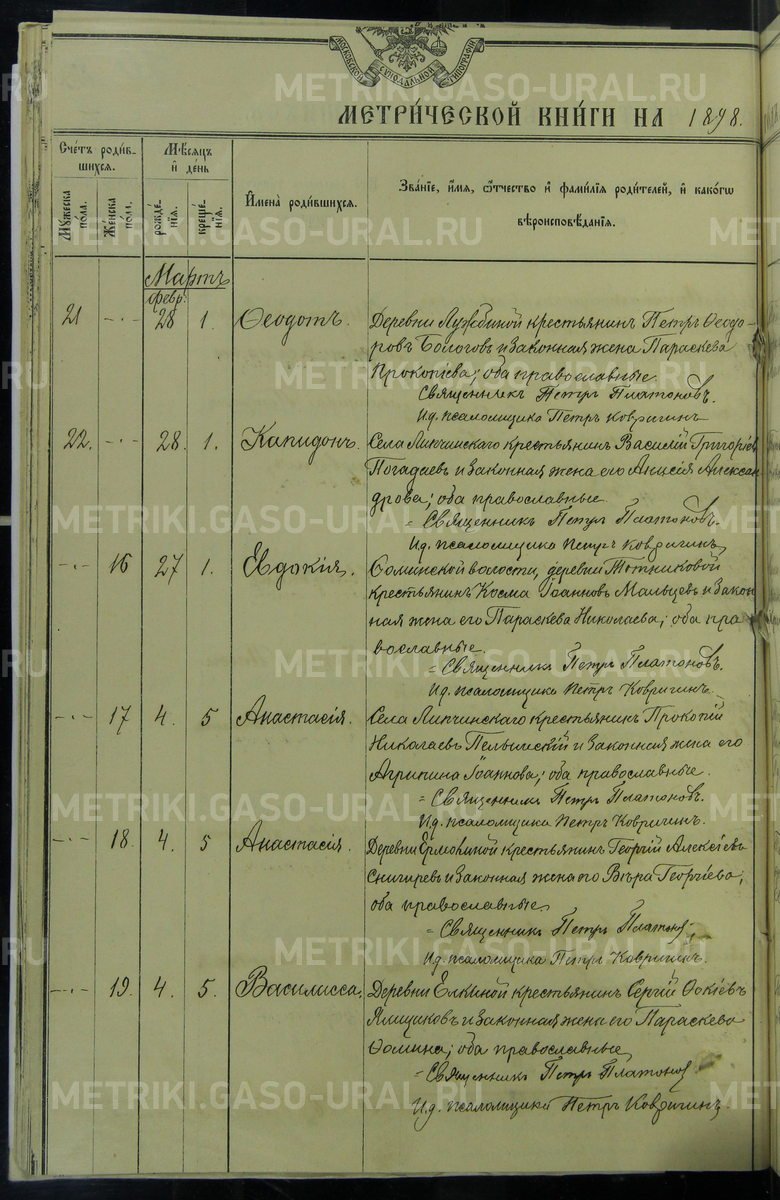 МОСКОВСКОЙ СУНОДАЛЬНОЙ ТИПОГРАФІИ
МЕТРИ́ЧЕСКОЙ КНИ́ГИ НА 1898.
Сче́тъ роди́в-
шихся.
Мѣ́сяцъ
и҆ де́нь
Мꙋ́жеска
по́ла.
Же́нска
по́ла.
рожде́-
нїя.
креще́-
нїя.
И҆мена̀ роди́вшихся.
Зва́нїе, и҆́мя, ѻ҆́тчество и҆ фами́лїя роди́телей, и҆ како́гѡ
вѣроисповѣ́данїя.
Мартъ
февр.
21 -·- 28 1. Ѳеодотъ. Деревни Лужбиной крестьянинъ Петръ Ѳеодо-
ровъ Бологовъ и законная жена Параскева
Прокопіева; оба православные.
Священникъ Петръ Платоновъ.
И.д. псаломщика Петръ Ковригинъ
22. -·- 28. 1. Капидонъ. Села Липчинскаго крестьянинъ Василій Григоріев
Погадаевъ и законная жена его Анисія Алексан
дрова; оба православные.
= Священникъ Петръ Платоновъ.
И.д. псаломщика Петръ Ковригинъ
-·- 16 27 1. Евдокія. деревни
крестьянинъ Косма Іоанновъ Мальцевъ и закон
ная жена его Параскева Николаева; оба пра
вославные.
= Священникъ Петръ Платоновъ.
И.д. псаломщика Петръ Ковригинъ
-·- 17 4. 5 Анастасія. Села Липчинскаго крестьянинъ Прокопій
Николаевъ Пелымскій и законная жена его
Агрипина Іоаннова; оба православные.
= Священникъ Петръ Платоновъ.
И.д. псаломщика Петръ Ковригинъ.
-·- 18. 4. 5 Анастасія. Деревни Ермохиной крестьянинъ Георгій Алексіевъ
Снигиревъ и законная жена его Вѣра Георгіева;
оба православные.
= Священникъ Петръ Платонов
И.д. псаломщика Петръ Ковригинъ.
-·- 19. 4. 5. Василисса. Деревни Елкиной крестьянинъ Сергій Фокіевъ
Ямщиковъ и законная жена его Параскева
Ѳомина; оба православные
= Священникъ Петръ Платонов
И.д. псаломщика Петръ Ковригинъ.
METRIKI.GASO-URAL.RU